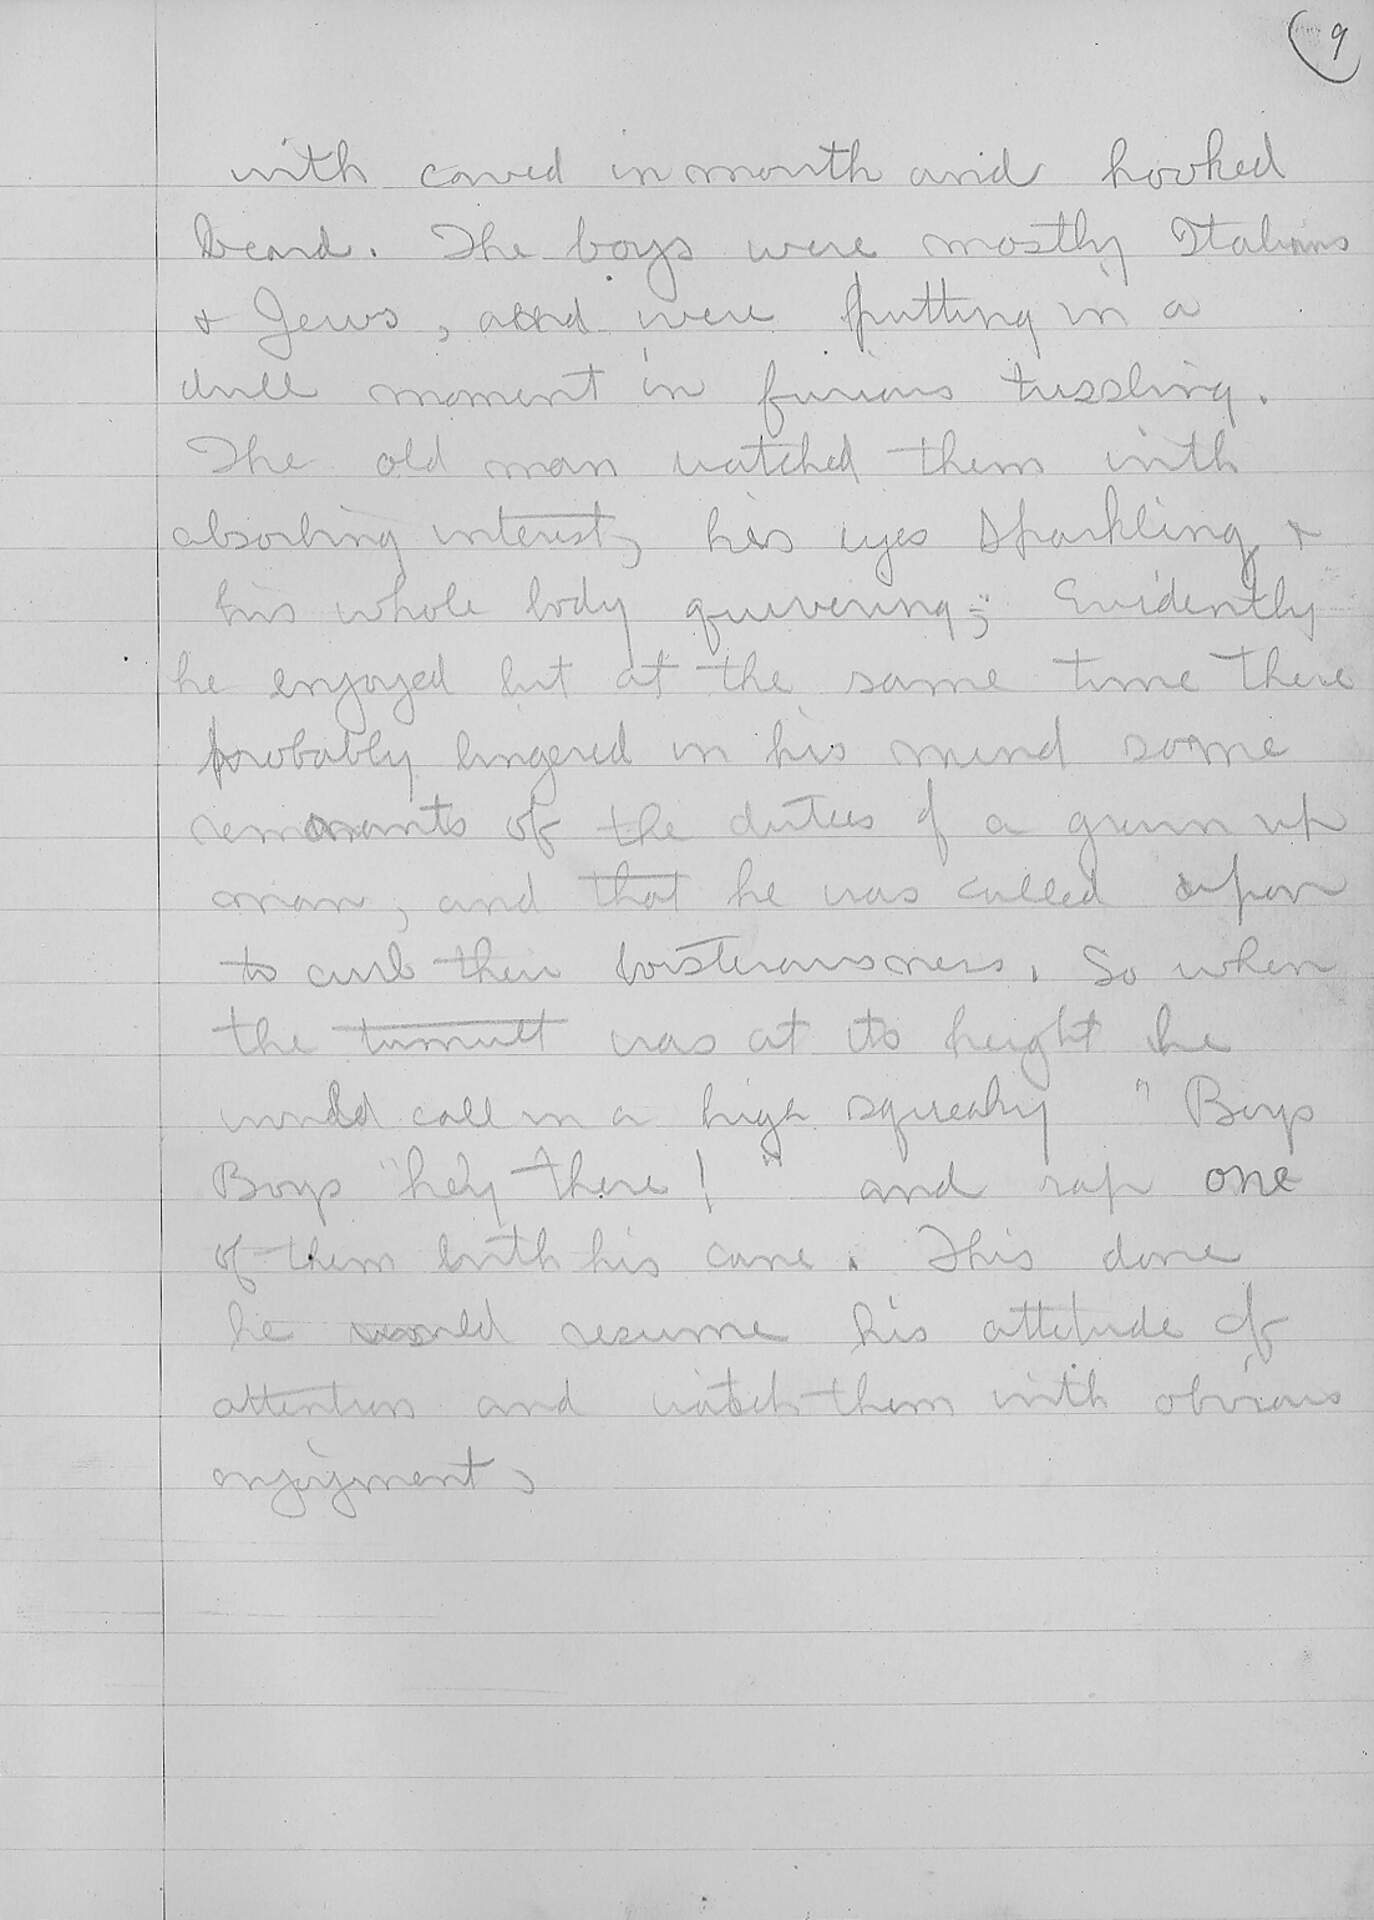 9
with caved in mouth and hooked
beard. The boys were mostly Italians
& Jews, and were putting in a
dull moment in furious tussling.
The old man watched them with
absorbing interest, his eyes sparkling &
his whole body quivering; Evidently
he enjoyed but at the same time there
probably lingered in his mind some
remnants of the duties of a grown up
man, and that he was called upon
to curb their boisterousness. So when
the tumult was at its height he
would call in a high squeaky "Boys
Boys "hey there!" and rap one
of them with his cane. This done
he would resume his attitude of
attention and watch them with obvious
enjoyment,